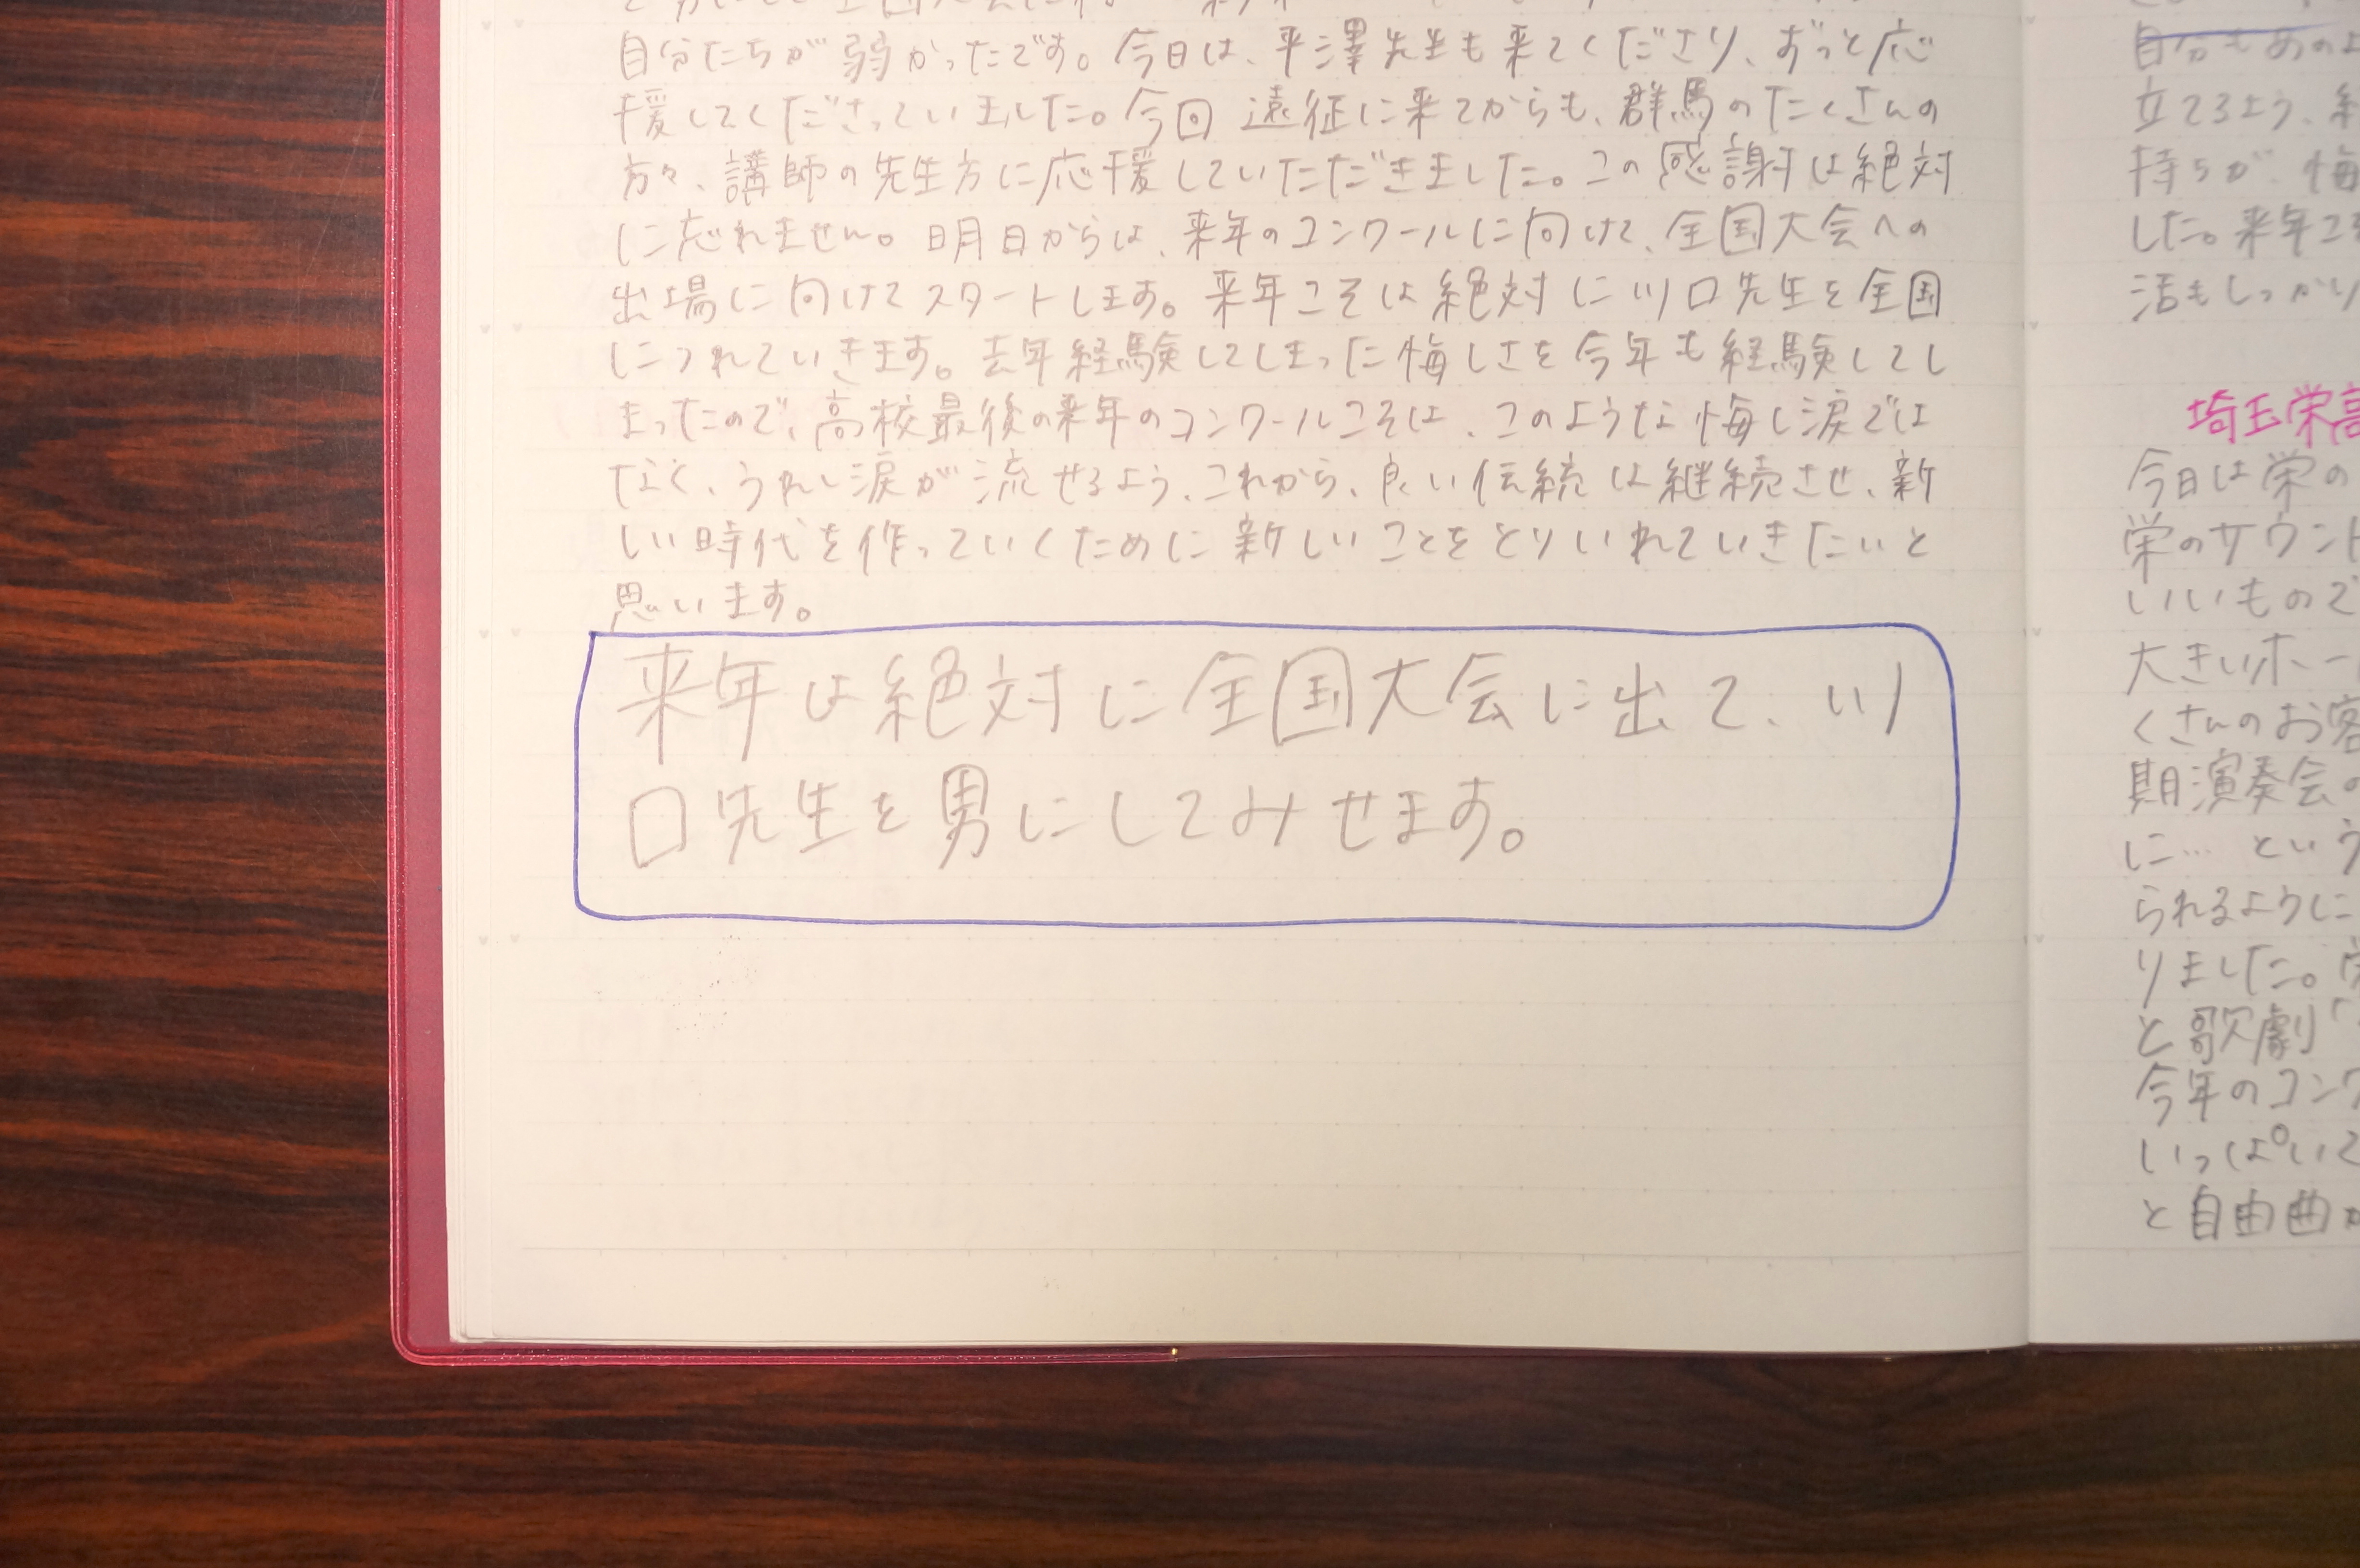 自分たちが弱かったです。今日は、平澤先生も来てくださり、ずっと応
援してくださっていました。今回遠征に来てからも、群馬のたくさんの
方々、講師の先生方に応援していただきました。この感謝は絶対
に忘れません。明日からは、来年のコンクールに向けて、全国大会への
出場に向けてスタートします。来年こそは絶対に川口先生を全国
につれていきます。去年経験してしまった悔しさを今年も経験してし
まったので、高校最後の来年のコンクールこそは、このような悔し涙では
なく、うれし涙が流せるよう、これから、良い伝統は継続させ、新
しい時代を作っていくために新しいことをとりいれていきたいと
思います。
来年は絶対に全国大会に出て、川
口先生を男にしてみせます。
自分もあのよ
立てるよう、
持ちが、悔
した。来年こそ
活もしっかり
埼玉栄高
今日は栄の
栄のサウンド
いいもので
大きいホール
くさんのお客
期演奏会の
に… という
られるように
りました。栄
と歌劇「
今年のコンク
いっぱいで
と自由曲が